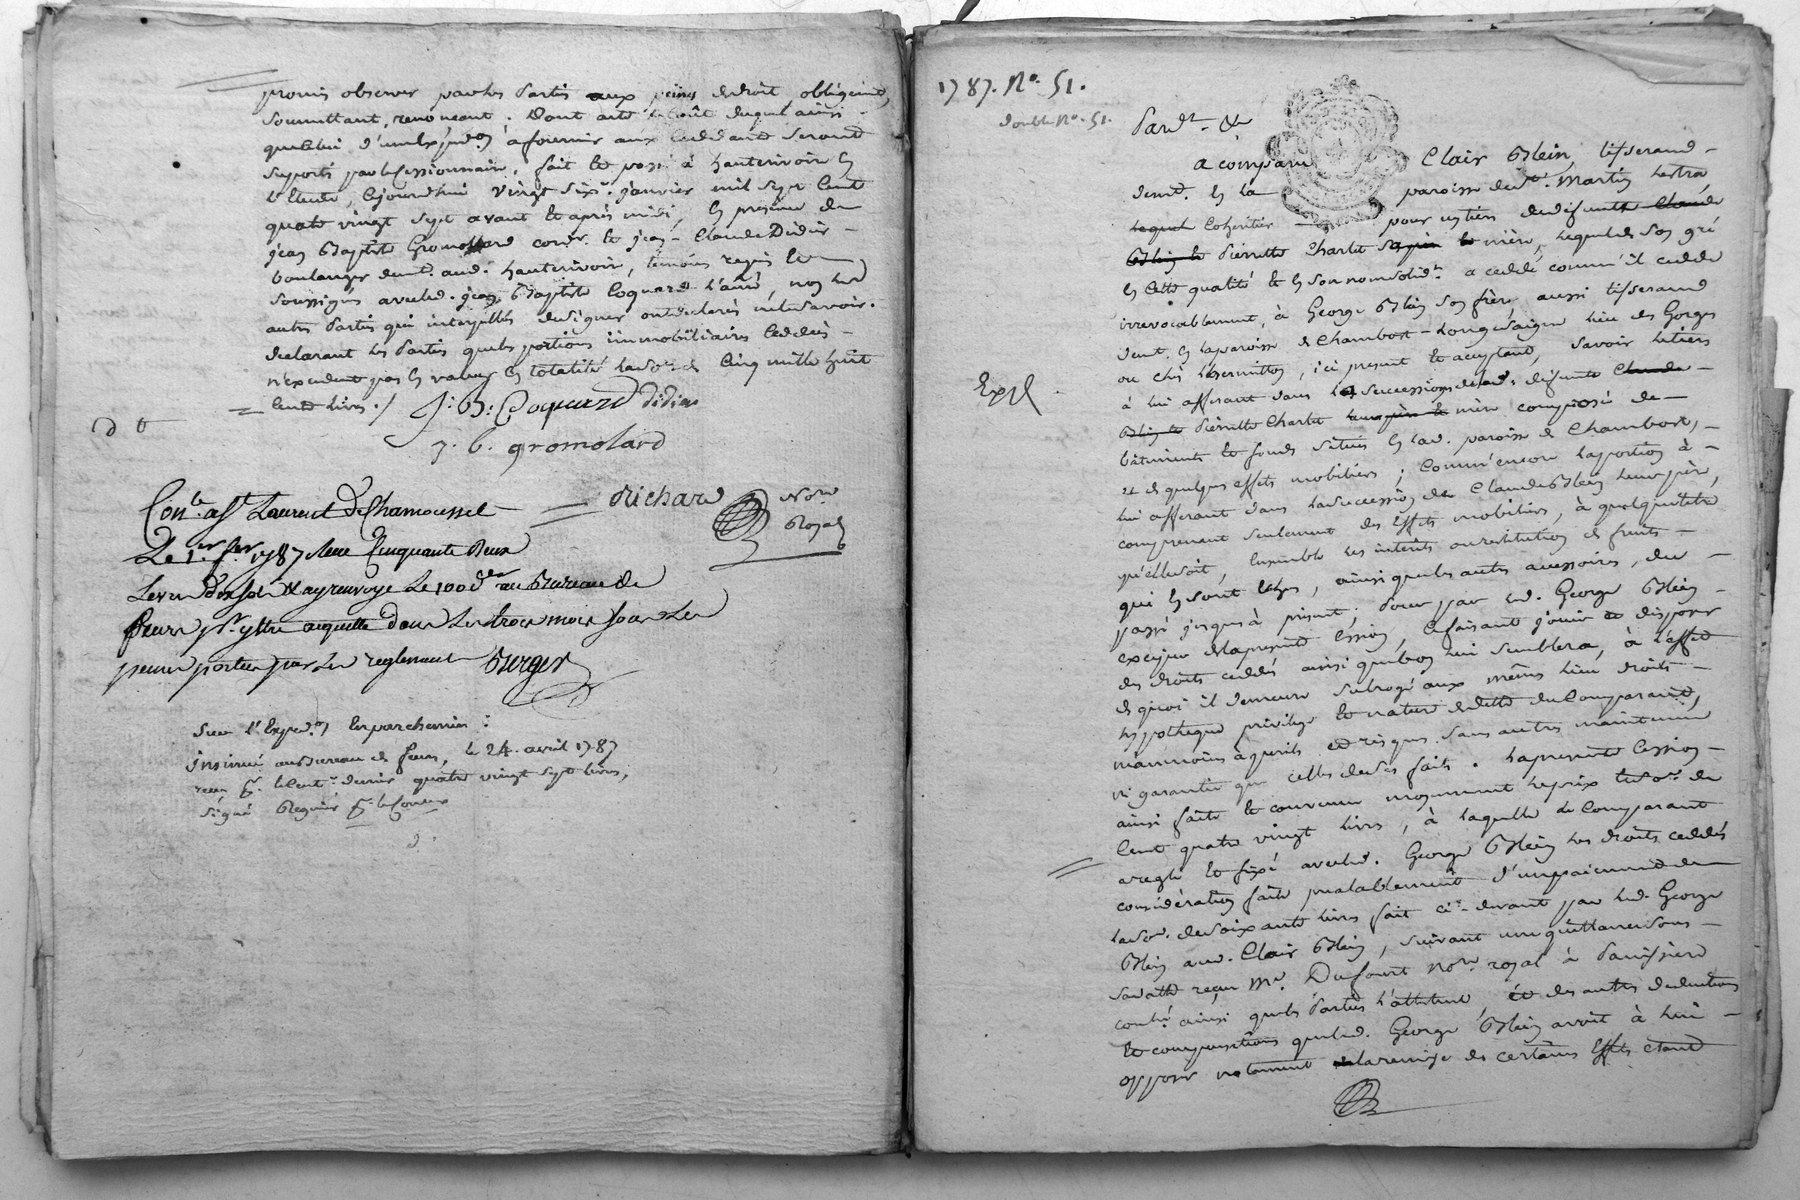 promis observer par les parties aux peines de droit obligeant,
soumettant, renonçant. Dont acte le coût duquel ainsi
que celui d'une expedon. a fournir aux ceddants seront
suportés par le cessionnaire, fait et passé à hauterivoire en
l'etude, cejourdhui vingt six janvier mil sept cent
quatre vingt sept avant et après midi, en presence de
jean Baptiste Gromollard cordr. et jean-Claude Didier
boulanger demt. aud. hauterivoire, temoins requis et
soussignés avec led. jean Baptiste Coquard l'ainé, non les
autres parties qui interpellées de signer ont declarés ne le savoir.
declarant les parties que les portions immobiliaires ceddées
n'excedent pas en valeur en totalité la so: de cinq mille huit
cents livres ./ J: B: Coquard didier
j. b. gromolard
Richard Nore
Royal
Con.le a St Laurent de Chamousset
Le 1er fer 1787 Reçu Cinquante deux
Livres dix sols & ay renvoye le 100e der au Bureau de
feurs pr. y être acquitté dans les trois mois sous les
peines portées par les reglements Berger
Sur l'Exped.on en parchemin :
insinué au Bureau de feurs, le 24. avril 1787
reçu pr. le cent.e denier quatre vingt sept livres,
signé Regnier
1787. No. 51.
double No. 51.
Pardt. &a
a comparu Clair Blein, tisserand
demt. en la paroisse de St. Martin Lestra
lequel coheritier pour un tiers de defunte Claude
Blein et Pierrette Charlet sa mère, lequel de son gré
en cette qualité et en son nom solidre a ceddé comme il cedde
irrevocablement, à George Blein son frère, aussi tisserand
demt. en la paroisse de Chambost-Longesaigne lieu des Gorges
ou chés Desrenottes, ici present et acceptant, savoir le tiers
Expé
à lui afferant dans la succession de lad. defunte Claude
Blein et Pierrette Charlet leur père et mère composée de
bâtiments et fonds situés en lad. paroisse de Chambost,
et de quelques effets mobiliers ; comm'encore la portion à
lui afferant dans la succession de Claude Blein leur père,
comprenant seulement des effets mobiliers, à quelque titre
qu'elle soit, ensemble les interêts ou restitution de fruits
qui en sont echus, ainsi que les autres accessoires, du
passé jusques à present ; Pour par led. George Blein
exciper de la presente cession, ce faisant jouir et disposer
des droits ceddés ainsi que bon lui semblera, à l'effet
de quoi il demeure subrogé aux mêmes lieu droits
hypotheque privilege et nature de dette du comparant,
néanmoins à perils et risques sans autres maintenue
ni garantie que celles de ses faits. La presente cession
ainsi faite et convenue moyennant le prix et so: de
cent quatre vingt livres, à laquelle le comparant
a reglé et fixé avec led. George Blein les droits ceddés
consideration faite prealablement d'un paiement de
la so: de soixante livres fait ci-devant par led. George
Blein aud. Clair Blein, suivant une quittance sous
sa date reçu Me. Dufourt Nore. royal à Panissiere
contré. ainsi que les parties l'attestent, et des autres deductions
et compensations que led. George Blein avoit à lui
opposer notament la remise de certains effets etant